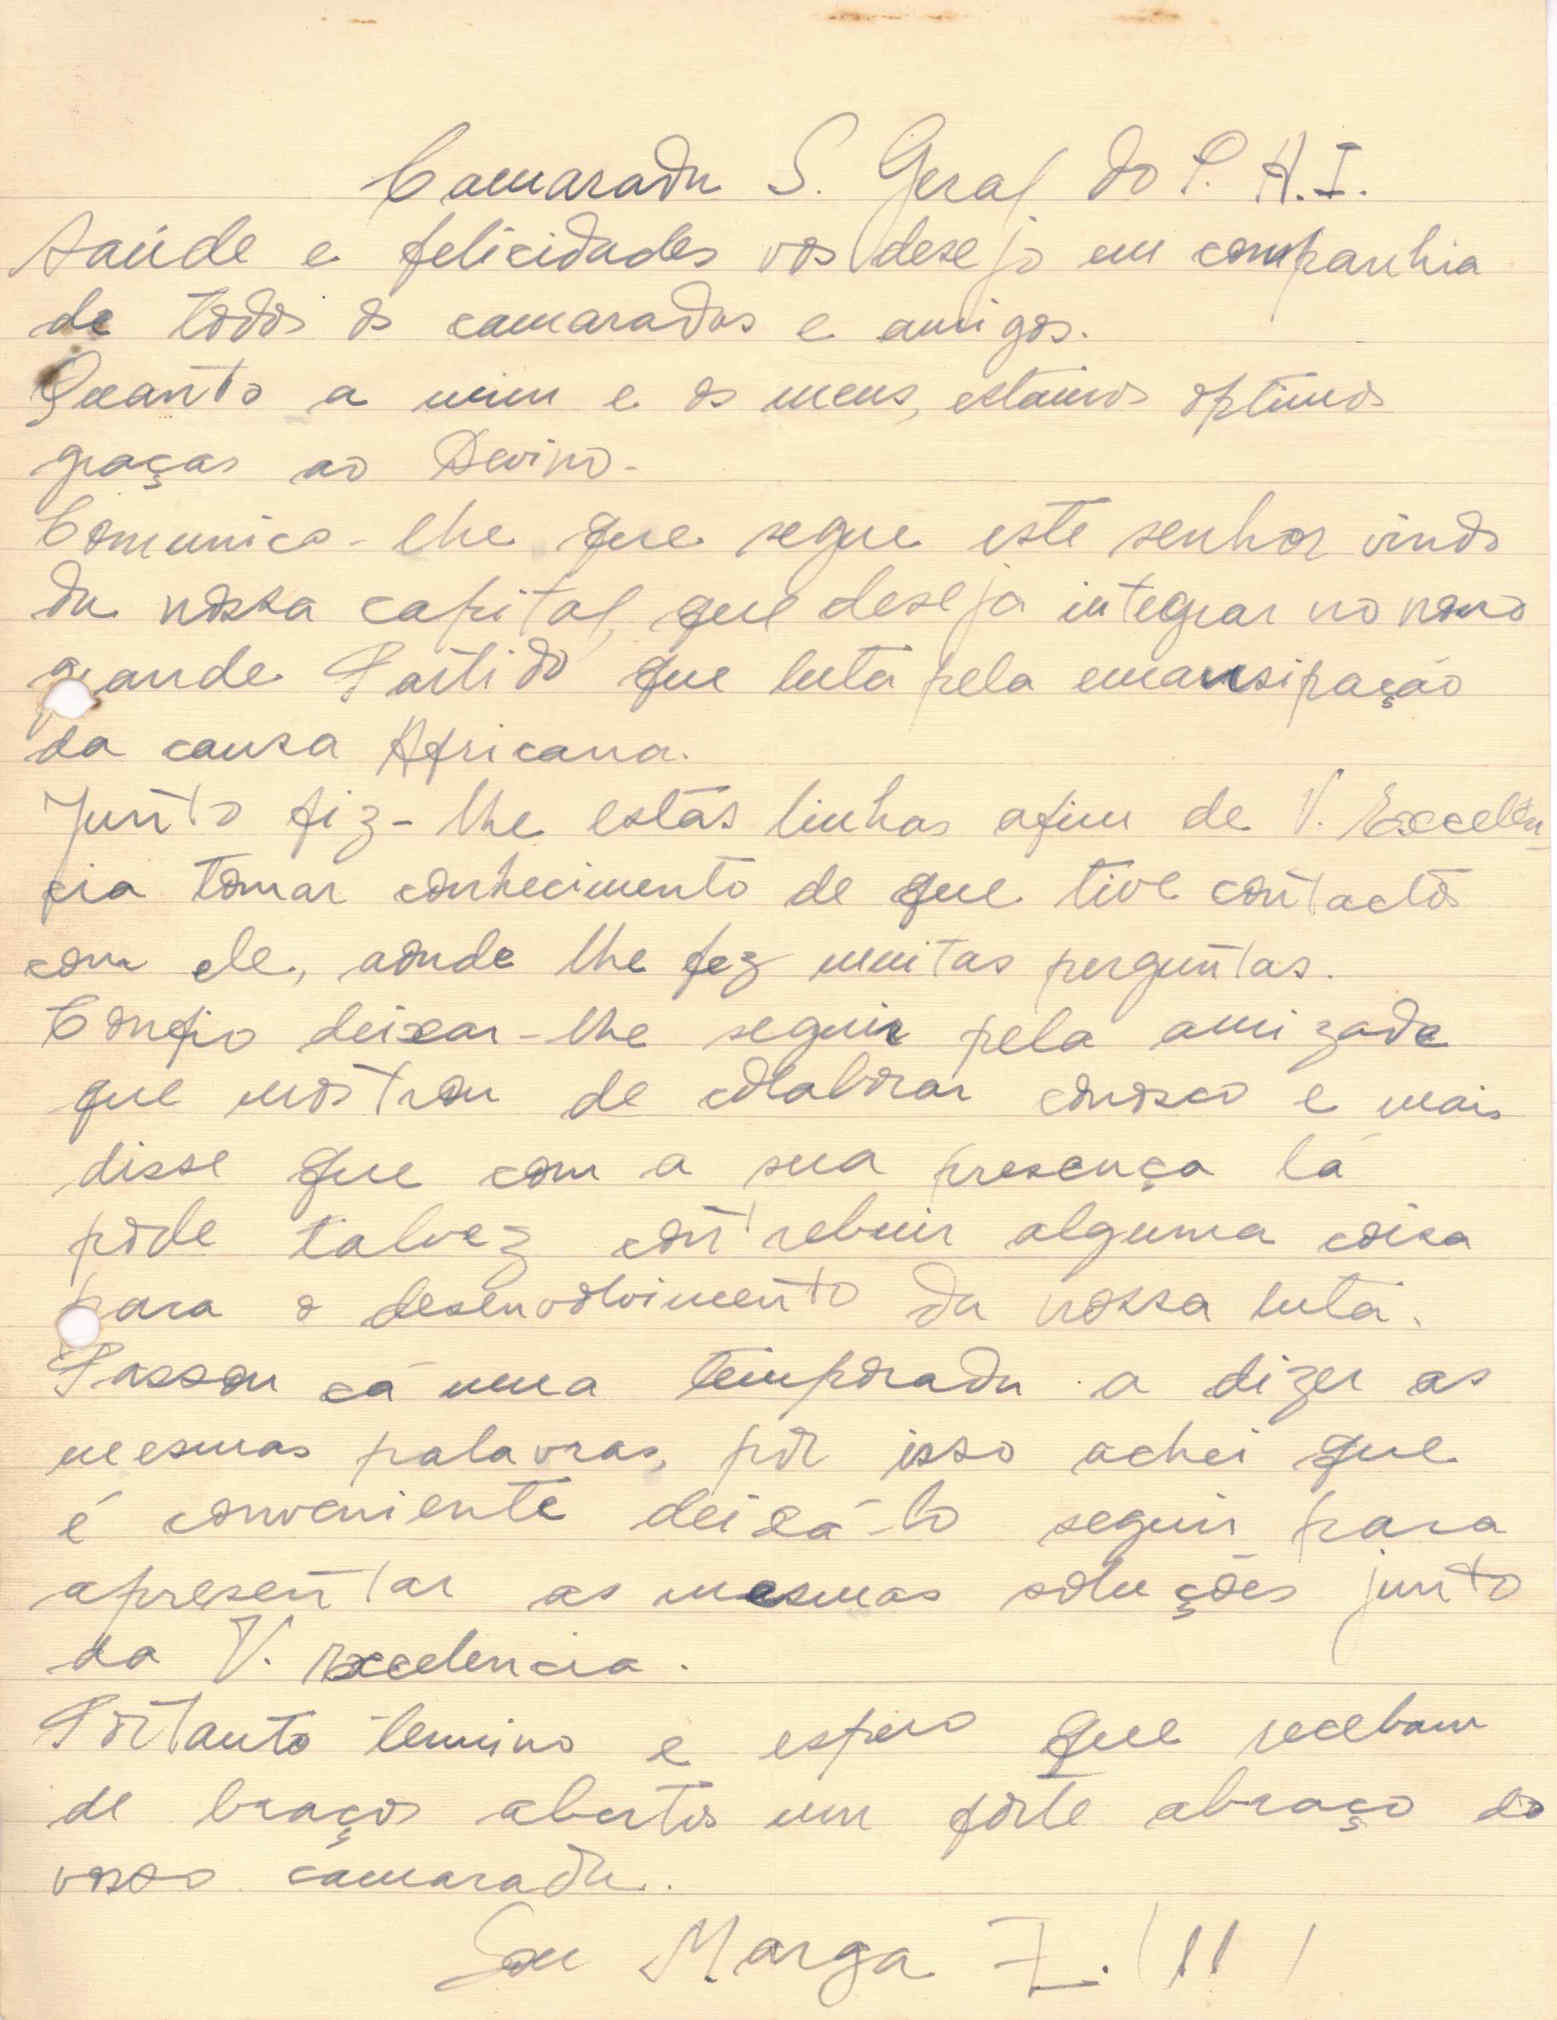 Camarada S. Geral do P. A. I.
Saúde e felicidades vos desejo em companhia
de todos os camaradas e amigos.
Quanto a mim e os meus, estamos optimos
graças ao Devino.
Comunico-lhe que segue este senhor vindo
da nossa capital, que deseja integrar no nosso
grande Partido que luta pela emansipação
da causa Africana.
Junto fiz-lhe estas linhas afim de V. Excelên-
cia tomar conhecimento de que tive contactos
com ele, aonde lhe fez muitas perguntas.
Confio deixar-lhe seguir pela amizade
que mostrou de colaborar conosco e mais
disse que com a sua presença lá
pode talvez contrebuir alguma coisa
para o desenvolvimento da nossa luta.
Passou cá uma temporada a dizer as
mesmas palavras, por isso achei que
é conveniente deixá-lo seguir para
apresentar as mesmas soluções junto
da V. Excelencia.
Portanto termino e espero que recebam
de braços abertos um forte abraço do
vosso camarada.
Sou Marga